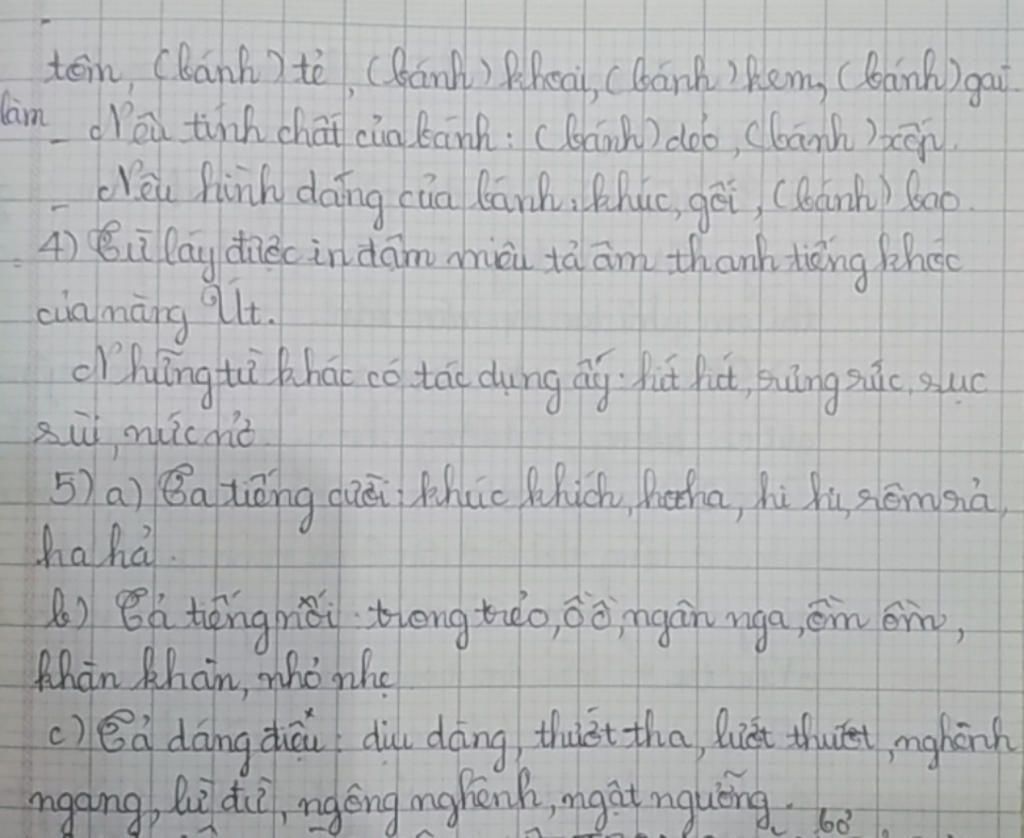 tôm, (bánh) tẻ, (bánh) khoai, (bánh) kem, (bánh) gai.
làm - Nêu tính chất của bánh: (bánh) dẻo, (bánh) xốp.
- Nêu hình dáng của bánh: khúc, gối, (bánh) bao.
4) Từ láy được in đậm miêu tả âm thanh tiếng khóc
của nàng Út.
Những từ khác có tác dụng ấy: hít hít, sưng sức, sục
sùi, nức nở.
5) a) Tả tiếng cười: khúc khích, ha ha, hi hi, rôm rả,
ha hả.
b) Tả tiếng nói: trong trẻo, ồ ồ, ngân nga, ồm ồm,
khàn khàn, nhỏ nhẹ
c) Tả dáng điệu: dịu dàng, thướt tha, lướt thướt, nghênh
ngang, lừ đừ, ngông nghênh, ngật ngưỡng.